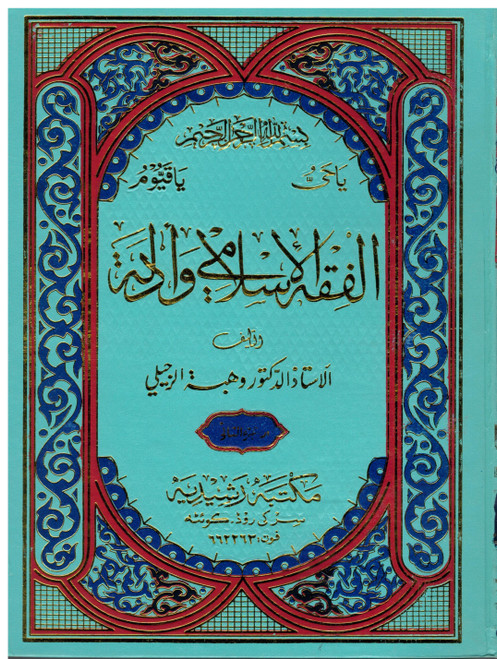 بسم الله الرحمن الرحيم
ياحيُّ ياقيُّومُ
الفقه الإسلامي وأدلة
تأليف
الاستاذ الدكتور وهبة الزحيلي
مكتبه رشيديه
سرکی روڈ۔ کوئٹہ
فون: ٦٦٢٢٦٣